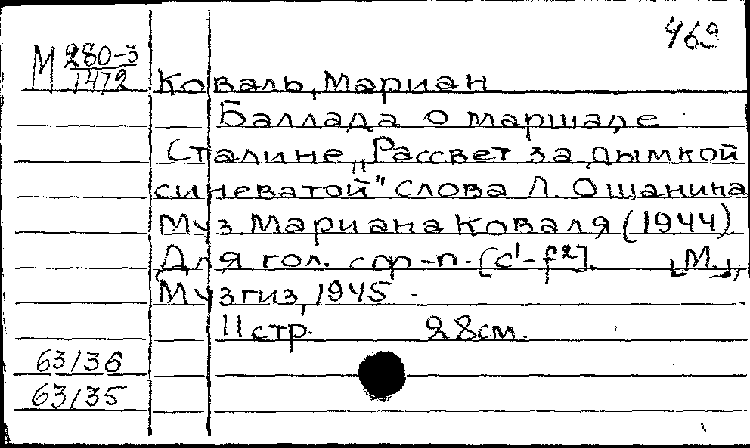 469
М 280-3
1472
Коваль, Мариан
Баллада о маршале
Сталине „Рассвет за дымкой
синеватой" слова Л. Ошанина
Муз. Мариана Коваля (1944)
Для гол. с ф-п. [c¹-f²]. [М.],
Музгиз, 1945
11 стр. 28см.
63/36
63/35